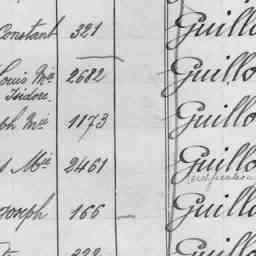 Constant 321 Guillo
Louis Mie 2682 Guillo
Isidore
ph Mie 1173 Guillo
s Mie 2461 Guillo
Joseph 166 Guillo
Guillo